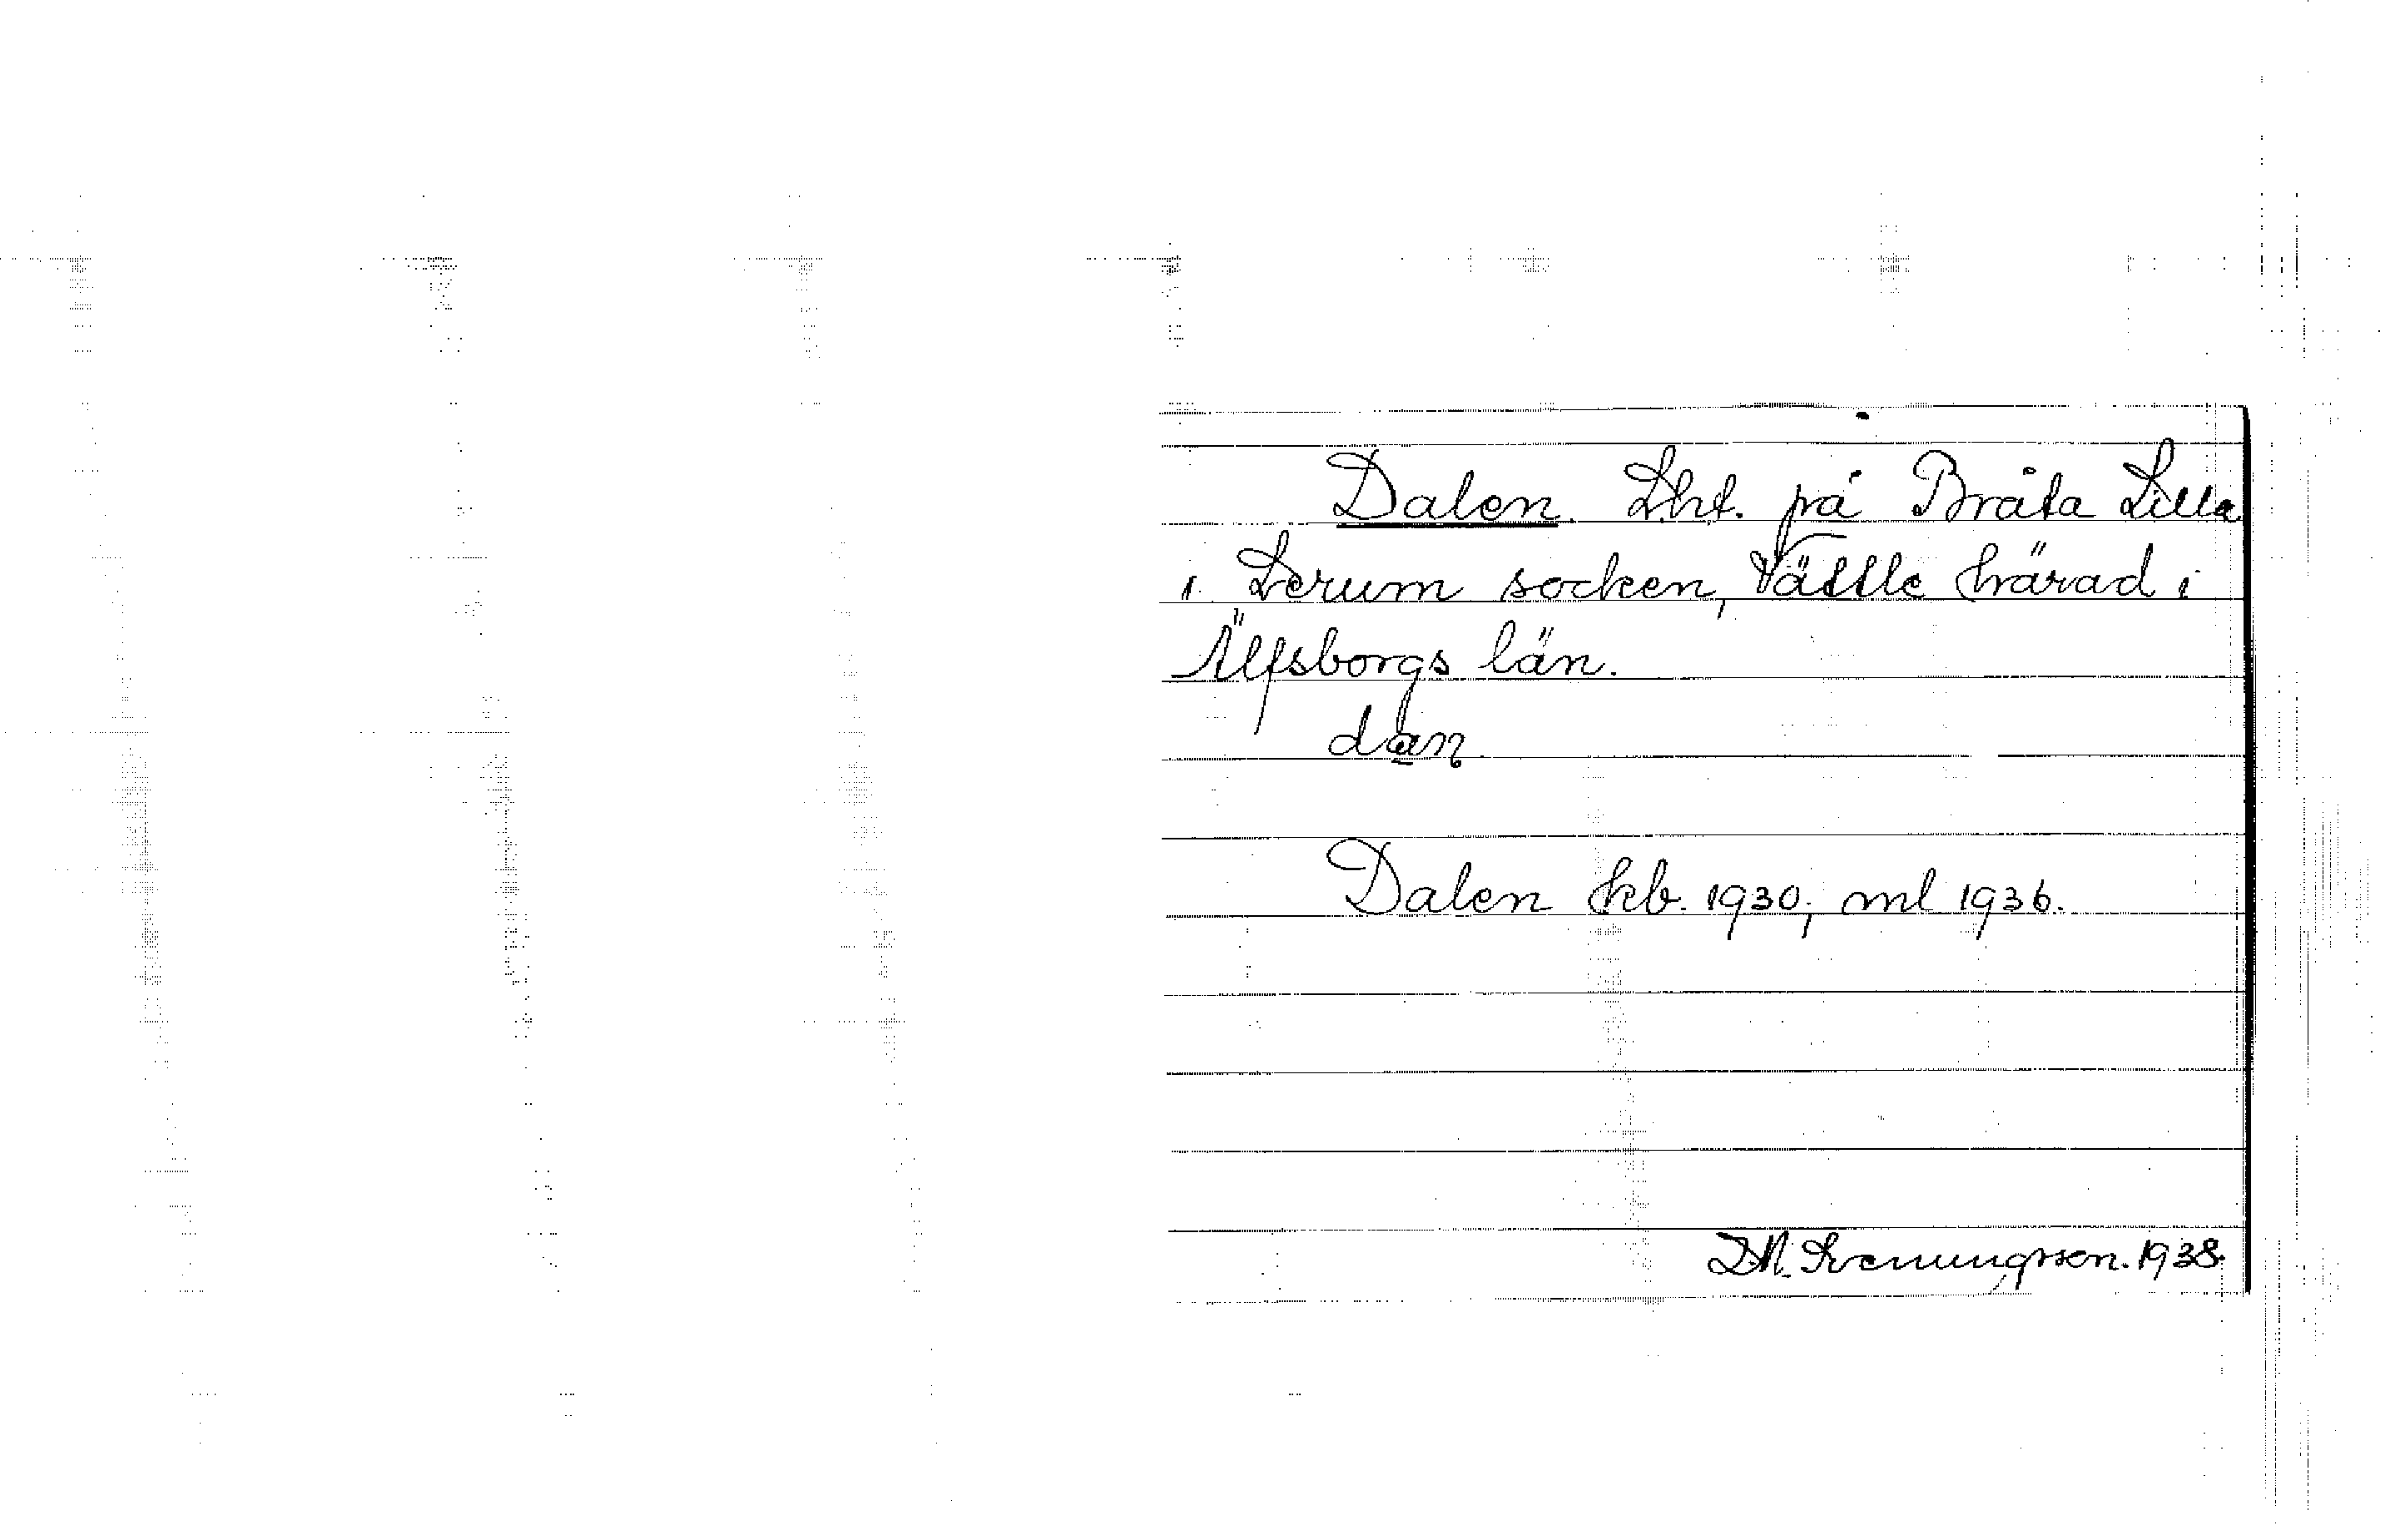 Dalen. Lht. på Bråta Lilla
i Lerum socken, Vättle härad i
Älfsborgs län.
dan
Dalen kb. 1930; ml 1936.
D.N. Svenungsson. 1938.